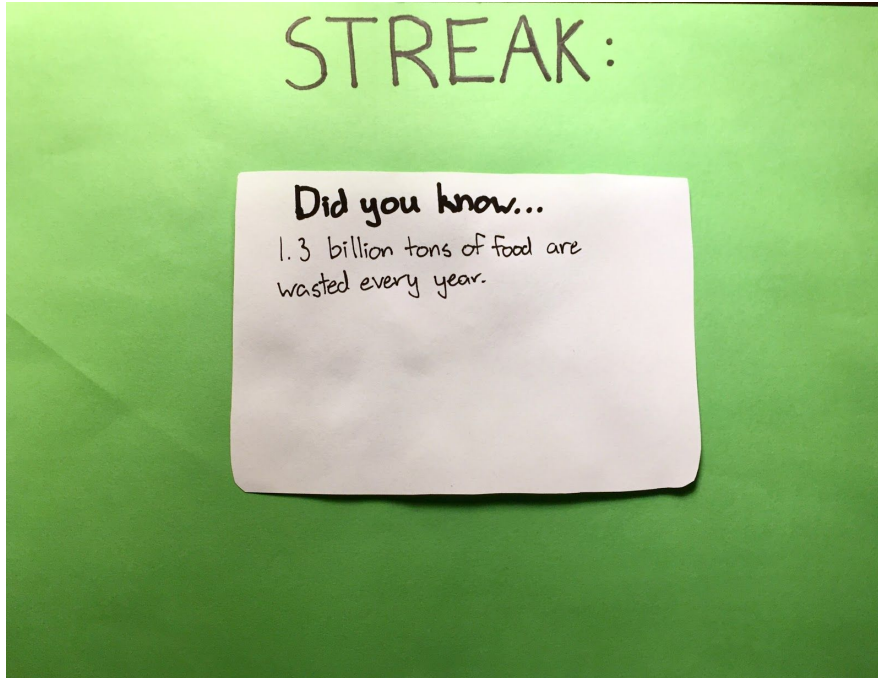 STREAK:
Did you know...
1.3 billion tons of food are
wasted every year.